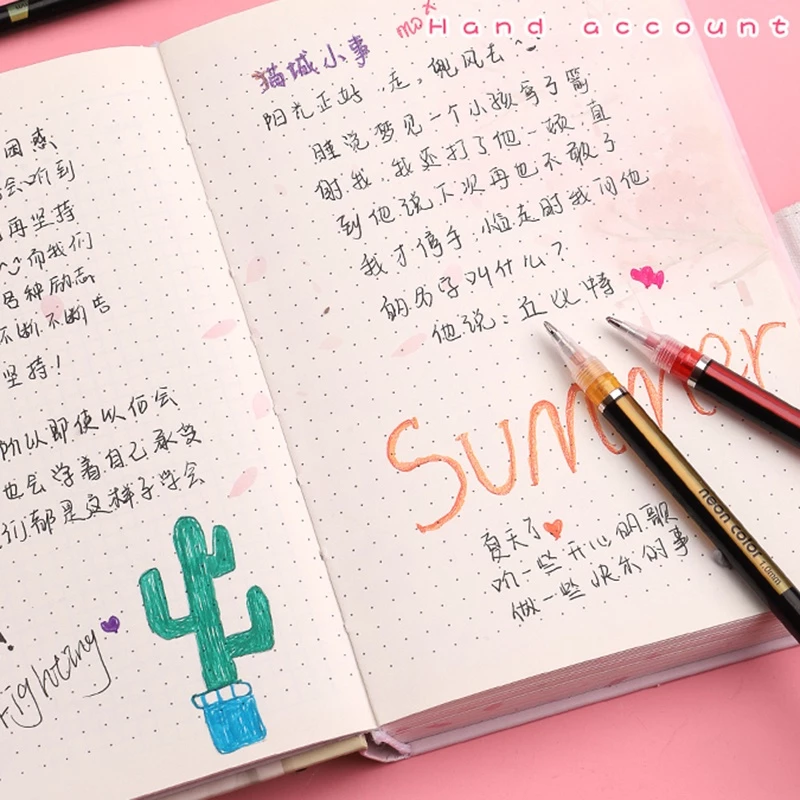 Hand account
困惑
会听到
再坚持
而我们
各种励志
不断不断告
坚持！
所以即使以后会
也会学着自己承受
们都是这样子学会
Fighting
猫城小事
阳光正好,走,兜风去
睡觉梦见一个小孩拿了箭
射我,我还打了他一顿,直
到他说下次再也不敢了
我才停手,临走时我问他
的名字叫什么?
他说:丘比特
Summer
夏天了
听一些开心的歌
做一些快乐的事
neon color 1.0mm